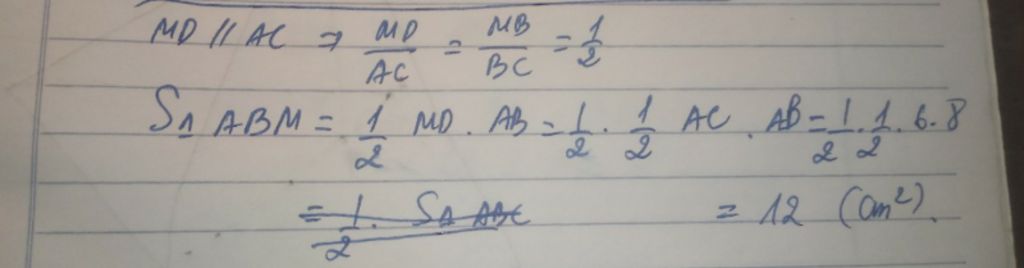 MD // AC => MD/AC = MB/BC = 1/2
SΔ ABM = 1/2 MD . AB = 1/2 . 1/2 AC . AB = 1/2 . 1/2 . 6 . 8
= 1/2 . SΔ ABC = 12 (cm²).